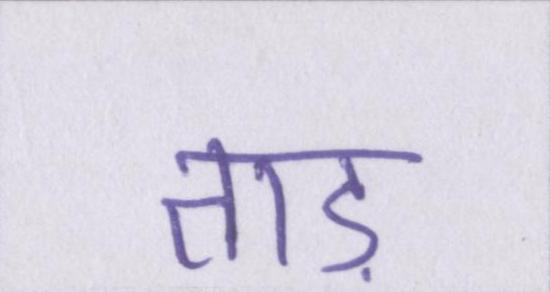 ताड़